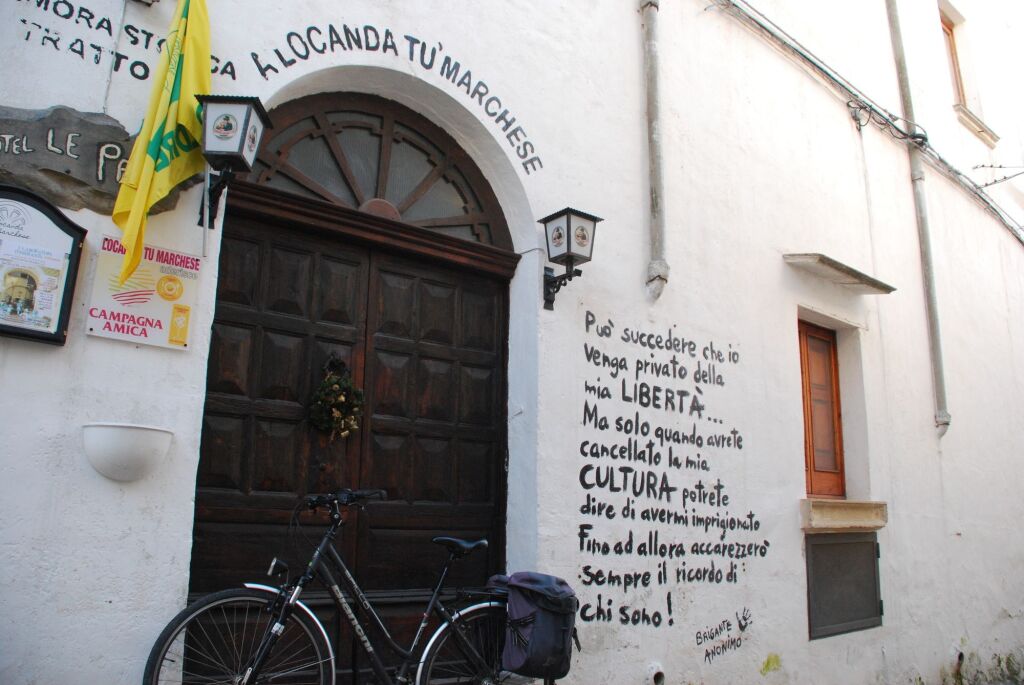 TRATTO
LOCANDA TU' MARCHESE
LE
LOCANDA TU MARCHESE
aderisce
CAMPAGNA
AMICA
Può succedere che io
venga privato della
mia LIBERTÀ...
Ma solo quando avrete
cancellato la mia
CULTURA potrete
dire di avermi imprigionato
Fino ad allora accarezzerò
sempre il ricordo di
chi sono!
BRIGANTE
ANONIMO
Bianchi